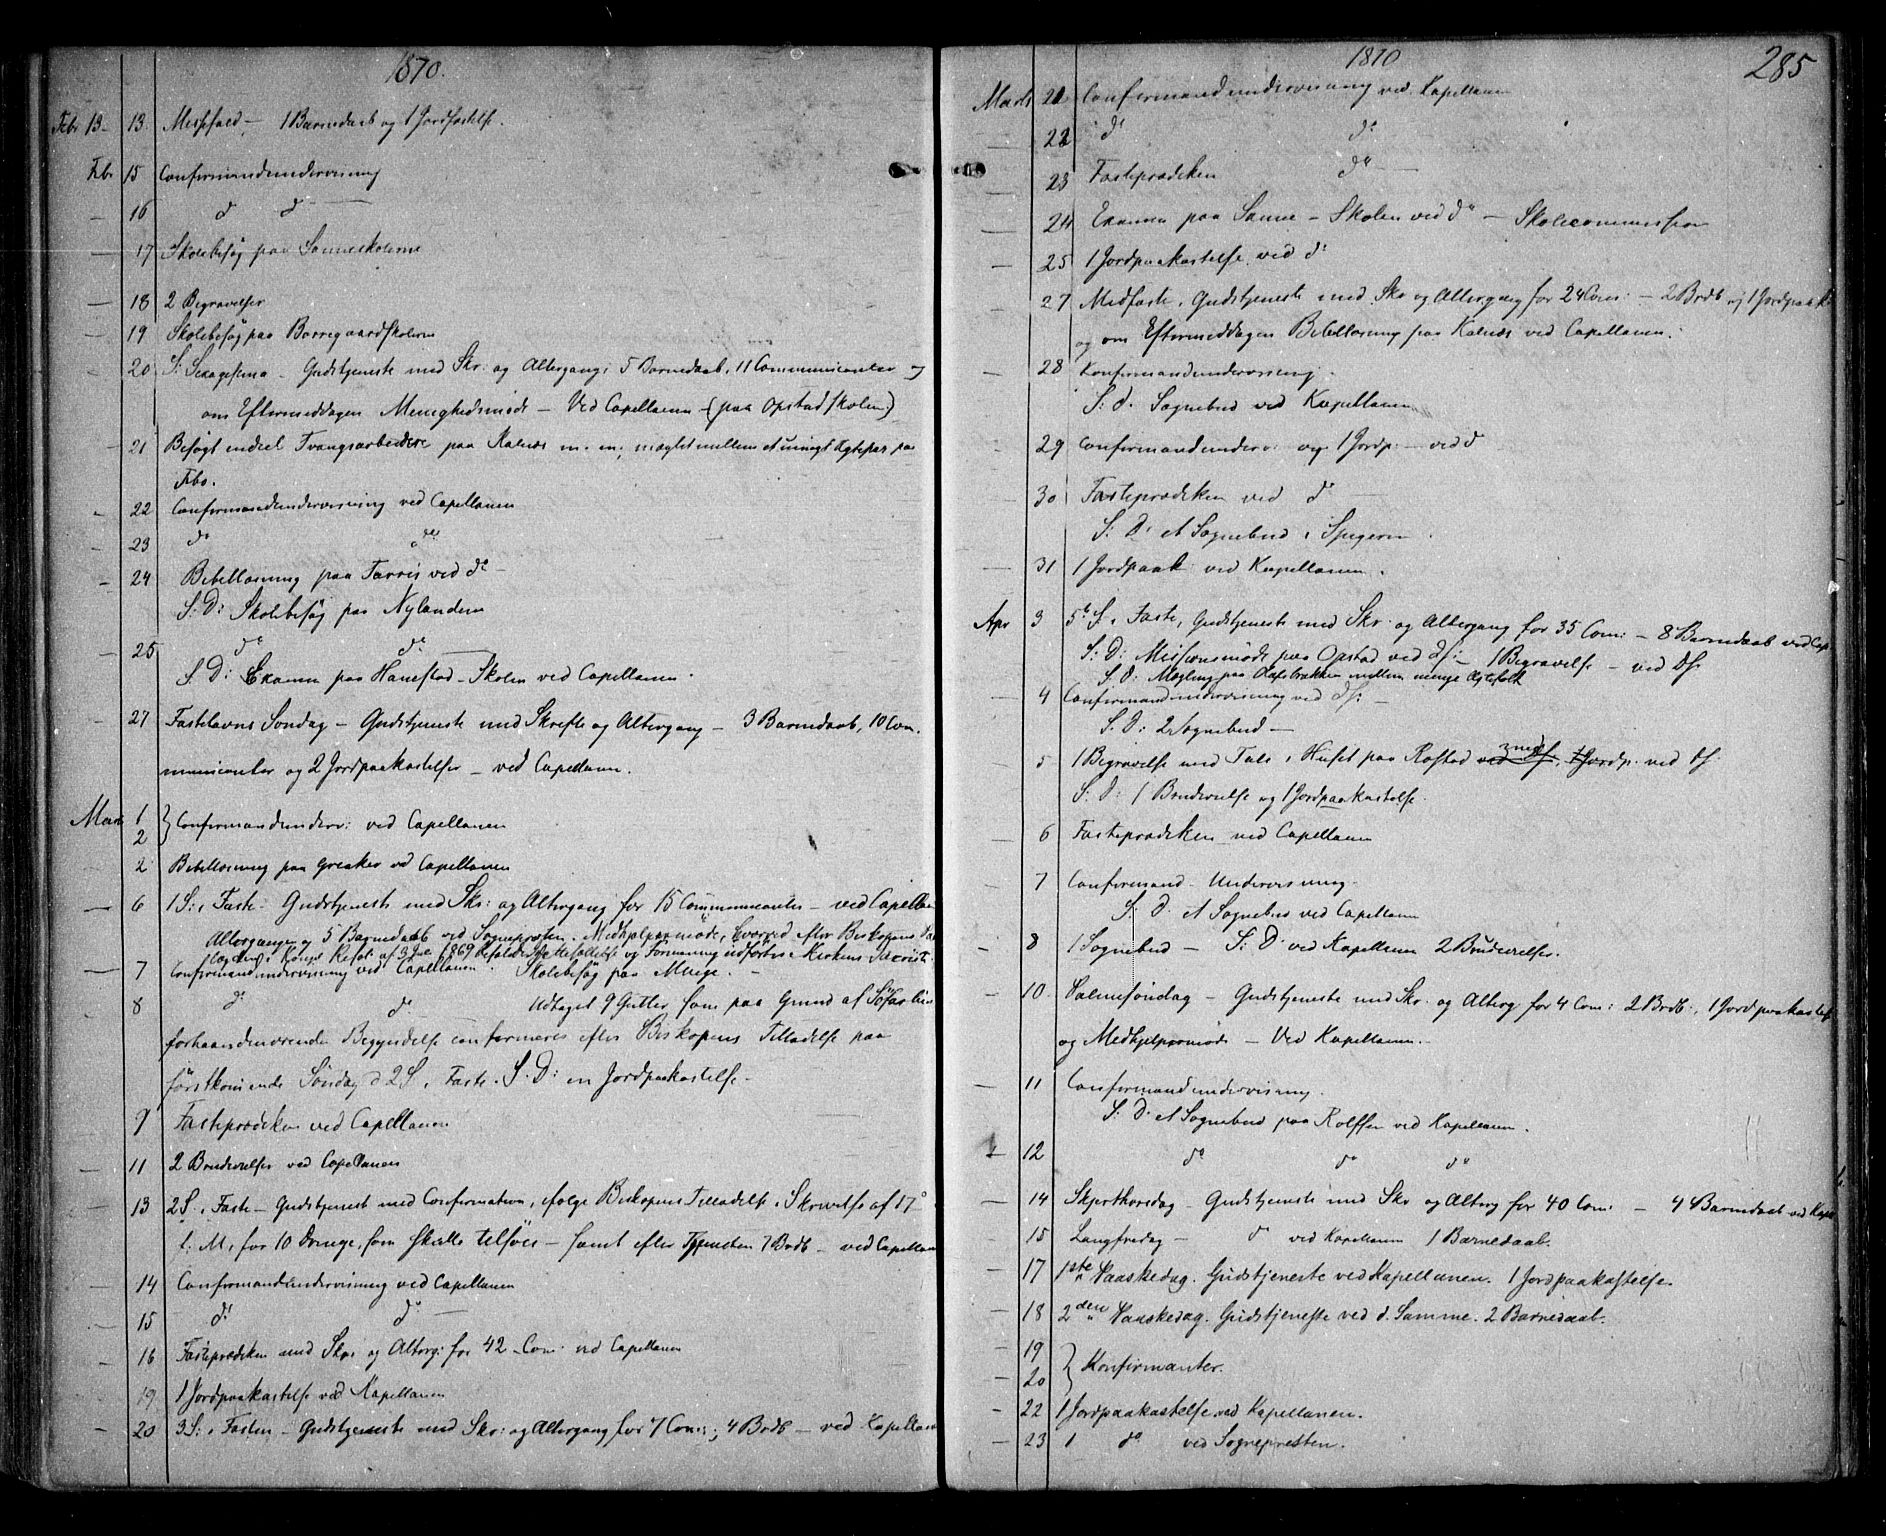 1870.
Febr 13 – 13. Messfald – 1 Barnedaab og 1 Jordfæstelse.
Febr 15 Confirmandundervisning
— 16 do do —
— 17 Skolebesøg paa Sanneskolerne
— 18 2 Begravelser
— 19 Skolebesøg paa Borregaardskolerne
— 20 S: Sexagesima – Gudstjeneste med Skr: og Altergang; 5 Barnedaab, 11 Communicanter og
om Eftermeddagen Menighedsmøde – Ved Capellanen – (paa Opstadskolen)
— 21 Besøgt endeel Tvangsarbeidere paa Kalnæs m. m; mæglet mellem et uenigt Ægtepar paa
Fbo.
— 22 Confirmandundervisning ved Capellanen
— 23 do do
— 24 Bibellæsning paa Tarris ved do –
S: D: Skolebesøg paa Nylanden
— 25 do do
S. D: Examen paa Hanestad–Skolen ved Capellanen.
27 Fastelavns Søndag – Gudstjeneste med Skrifte og Altergang – 3 Barnedaab, 10 Com
municanter og 2 Jordpaakastelser – ved Capellanen.
Marts 1
2 } Confirmandunderv: ved Capellanen
2 Bibellæsning paa Greaker ved Capellanen
— 6 1 S: i Faste – Gudstjeneste med Skr: og Altergang for 15 Communicanter – ved Capellan
Altergange og 5 Barnedaab ved Sognepresten. Medhjelpermøde, hvorved efter Biskopens
Kongl Resol: af 3 1869 og Formaning udførtes i Kirkens Sacristi
— 7 Confirmandundervisning ved Capellanen. Skolebesøg paa Mnige. –
8 do do Udtaget 9 Gutter som paa Grund af Søfartens
forhaandenværende Begyndelse confirmeres efter Biskopens Tilladelse paa
førstkomende Søndag d 2 S. i Faste. S. D: en Jordpaakastelse –
— 9 Fasteprædiken ved Capellanen
— 11 2 Brudevielser ved Capellanen
— 13 2 S. i Faste – Gudstjenest med Confirmation, ifølge Biskopens Tilladelse i Skrivelse af 17
f: M: for 10 Drenge, som skulle tilsøes – samt efter Tjenesten 7 Brdb – ved Capellan
— 14 Confirmandundervisning ved Capellanen
— 15 do do —
— 16 Fasteprædiken med Skr: og Alterg: for 42 Com: ved Capellanen
— 19 1 Jordpaakastelse ved Kapellanen
— 20 3 S: i Fasten – Gudstjeneste med Skr: og Altergang for 7 Com:; 4 Brdb – ved Kapellan
1870
285
Marts 21 Confirmandundervisning ved Kapellanen
— 22 do do
— 23 Fasteprædiken do —
— 24 Examen paa Sanne – Skolen ved do – Skolecommission
— 25 1 Jordpaakastelse ved do
27 Midfaste, Gudstjeneste med Skr og Altergang for 24 Com: – 2 Brdb og 1 Jordpaak
og om Eftermeddagen Bibellæsning paa Kalnæs ved Capellanen.
— 28 Konfirmandundervisning.
S: d. Sognebud ved Kapellanen
— 29 Confirmandunderv: og 1 Jordp: – ved d
— 30 Fasteprædiken ved do —
S: D: et Sognebud i Spigeren.
— 31 1 Jordpaak: ved Kapellanen.
Apr 3 5te S. i Faste, Gudstjeneste med Skr og Altergang for 35 Com: – 8 Barnedaab ved Cap
S: D: Missionsmøde paa Opstad ved ds: – 1 Begravelse – ved ds:
S. D: Mægling paa Hafsbrakken mellem uenige Ægtefolk
— 4 Confirmandundervisning ved ds: –
S. D: 2 Sognebud –
5 1 Begravelse med Tale i Huset paa Rostad ved ds, med 1 Jordp. ved ds:
S. D: 1 Brudevielse og 1 Jordpaakastelse.
— 6 Fasteprædiken ved Capellanen
— 7 Confirmand – Undervisning.
S: D. et Sognebud ved Capellanen
— 8 1 Sognebud – S: D: ved Kapellanen 2 Brudevielser.
— 10. Palmesøndag – Gudstjeneste med Skr. og Alterg for 4 Com: 2 Brdb:, 1 Jordpaakastelse
og Medhjelpermøde – Ved Kapellanen. –
— 11 Confirmandundervisning.
S. D: et Sognebud paa Rolfsøen ved Kapellanen.
— 12 do do do
— 14 Skjærthorsdag – Gudstjeneste med Skr og Alterg for 40 Com: – 4 Barnedaab ved Kapell
— 15 Langfredag – do ved Kapellanen 1 Barnedaab.
— 17 1ste Paaskedag. Gudstjeneste ved Kapellanen. 1 Jordpaakastelse.
— 18 2den Paaskedag. Gudstjeneste ved d. Samme. 2 Barnedaab.
— 19
— 20 } Konfirmanter.
— 22 1 Jordpaakastelse ved Kapellanen.
— 23 1 do ved Sognepresten.